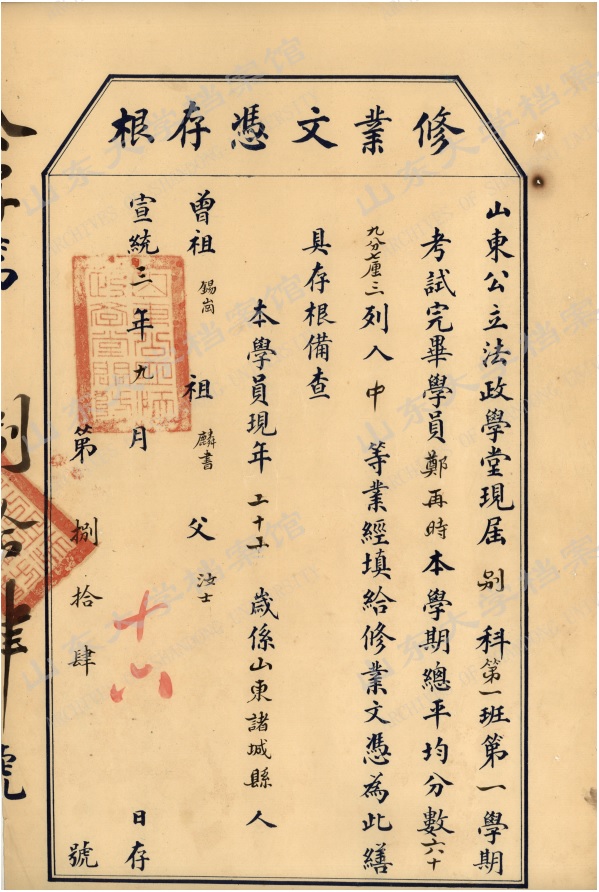 修業文憑存根
山東公立法政學堂現屆別科第一班第一學期
考試完畢學員鄭再時本學期總平均分數六十
九分七厘三列入中等業經填給修業文憑為此繕
具存根備查
本學員現年二十五歲係山東諸城縣人
曾祖錫崗祖麟書父汝士
宣統三年九月十六日存
第捌拾肆號
捌拾肆號
山东大学档案馆
ARCHIVES OF SHANDONG UNIVERSITY